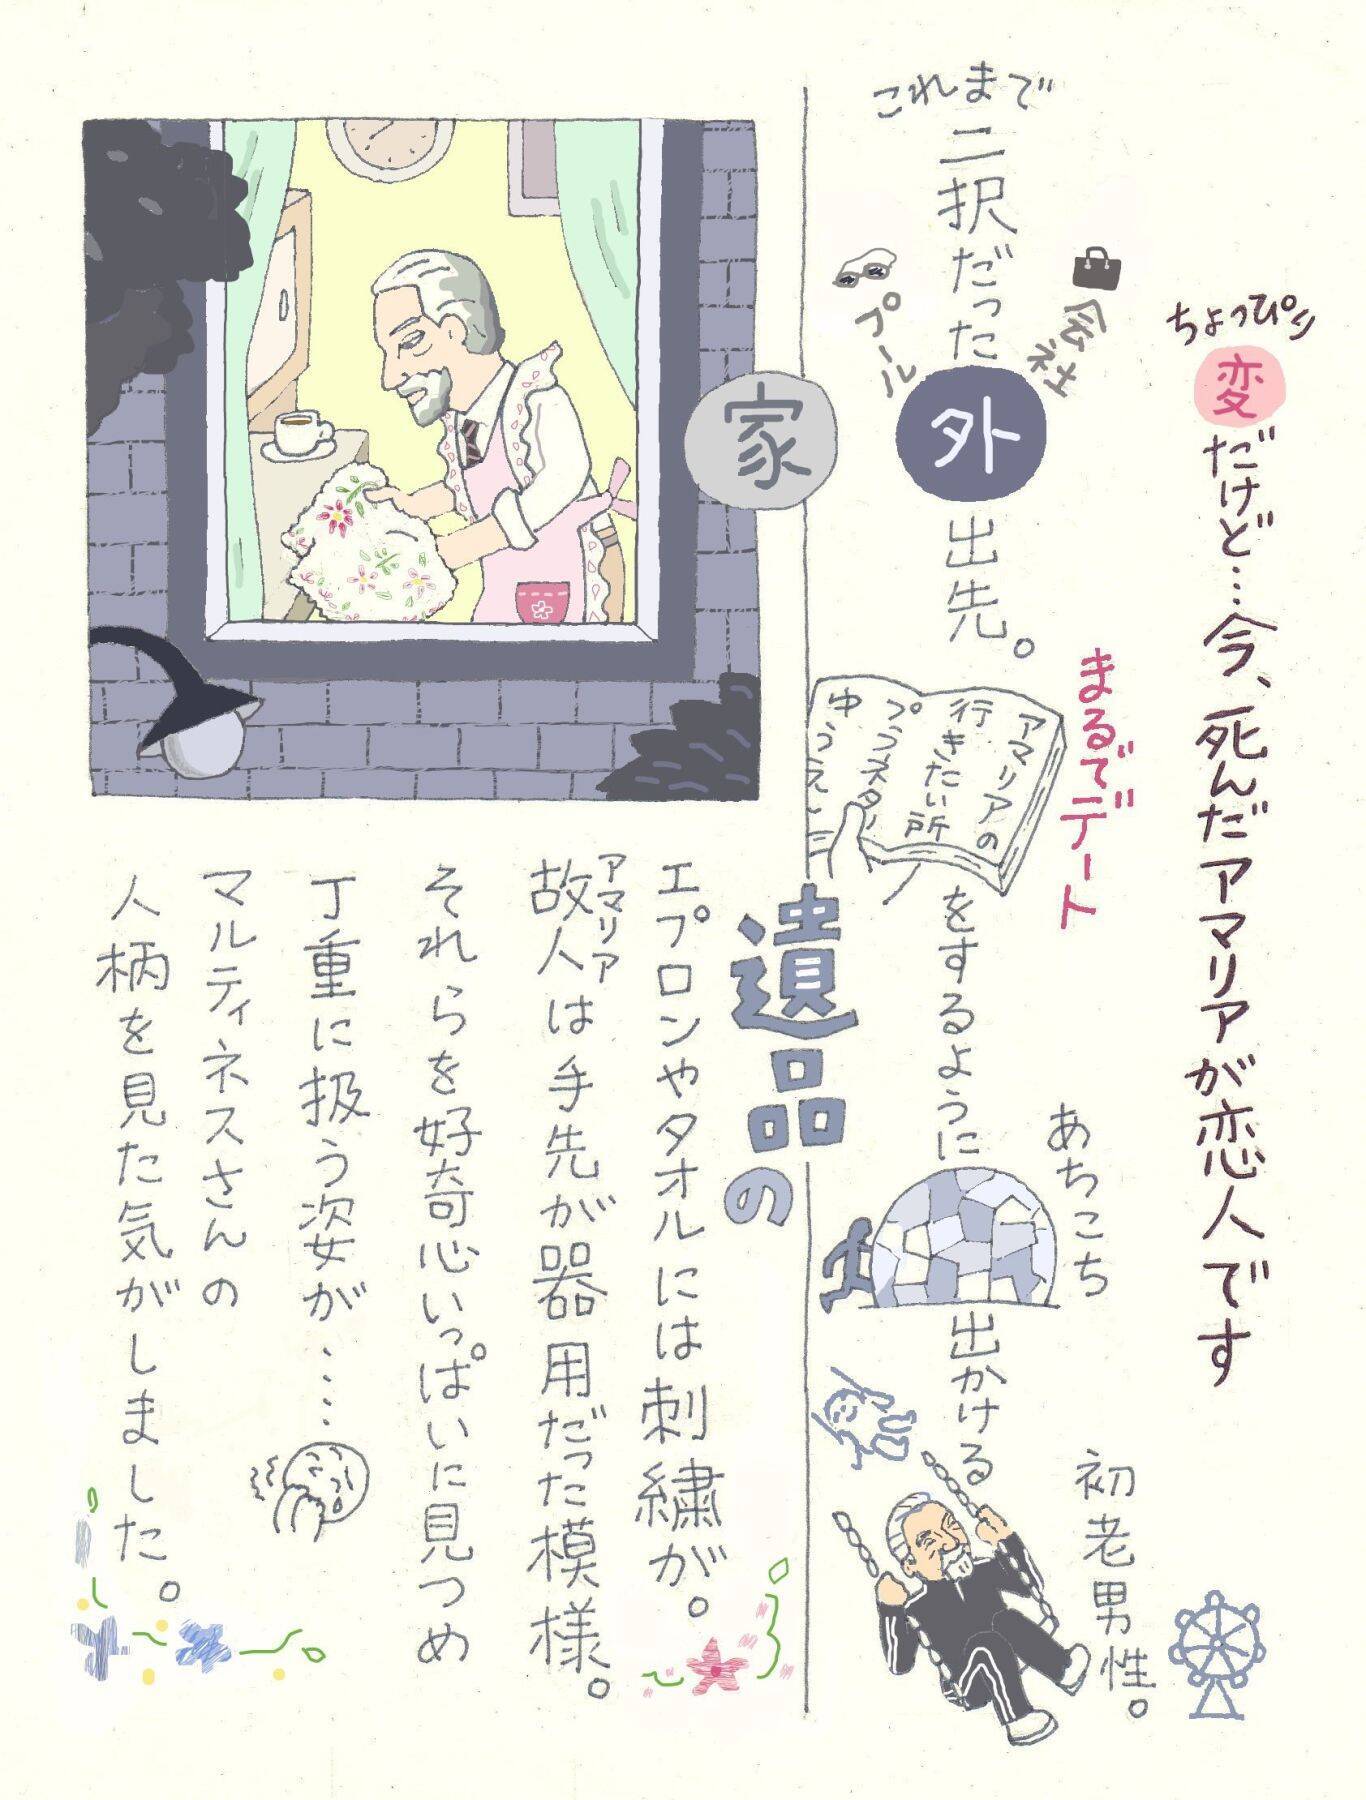 ちょっぴり
変だけど…今、死んだアマリアが恋人です
これまで
二択だった外出先。
会社
プール
まるでデート
をするように
アマリアの
行きたい所
ゆうえん
あちこち
出かける
初老男性。
家
遺品の
エプロンやタオルには刺繍が。
アマリア
故人は手先が器用だった模様。
それらを好奇心いっぱいに見つめ
丁重に扱う姿が……
マルティネスさんの
人柄を見た気がしました。